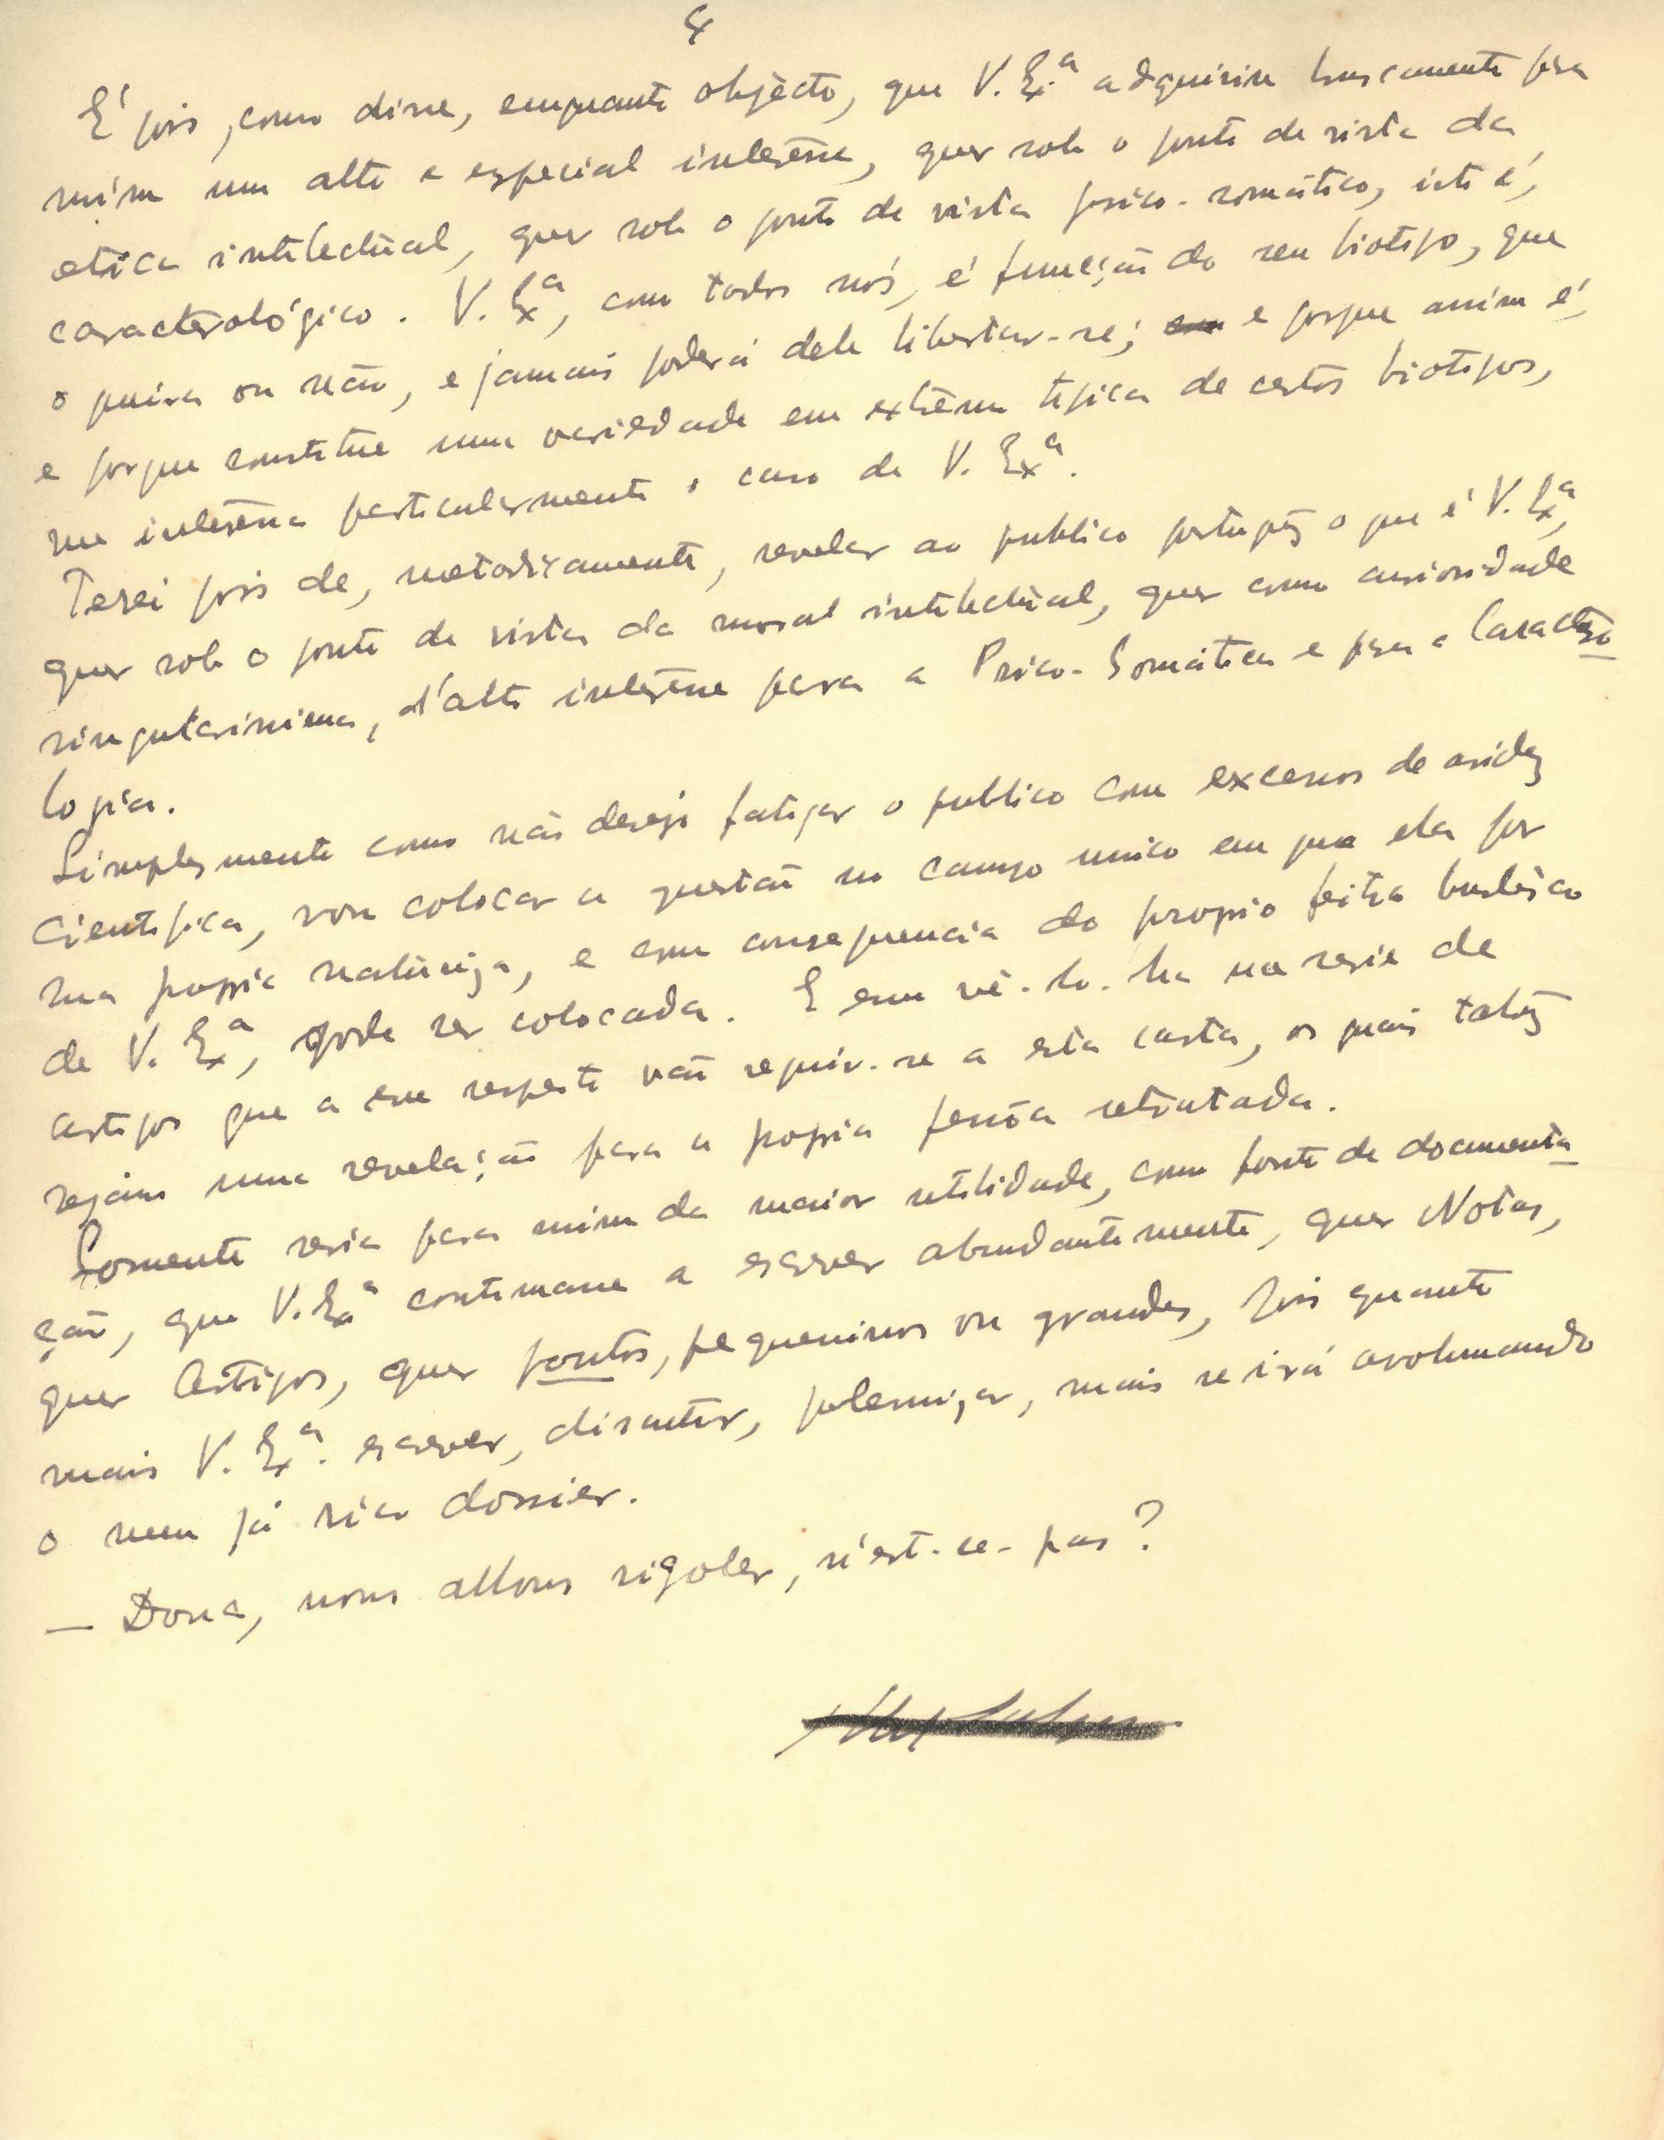 É pois, como disse, emquanto objécto, que V. Ex.ª adquiriu bruscamente para
mim um alto e especial interêsse, quer sob o ponto de vista da
etica intelectual, quer sob o ponto de vista psico-somático, isto é,
caracterológico. V. Exª, como todos nós, é função do seu biotipo, que
o queira ou não, e jamais poderá dele libertar-se; e porque assim é,
e porque constitue uma variedade em extrêmo tipica de certos biotipos,
me interêssa particularmente o caso de V. Exª.
Terei pois de, metodicamente, revelar ao publico português o que é V. Exª,
quer sob o ponto de vista da moral intelectual, quer como curiosidade
singularissima, d'alto interêsse para a Psico-Somática e para a Caractero
logia.
Simplesmente como não desejo fatigar o publico com excessos de aridez
cientifica, vou colocar a questão no campo unico em que ela por
sua propria naturêza, e em consequencia do proprio feitio burlêsco
de V. Exª, pode ser colocada. E em vê-lo-ha na serie de
artigos que a esse respeito vão seguir-se a esta carta, os quais talvez
sejam uma revelação para a propria pessôa retratada.
Somente seria para mim da maior utilidade, como fonte de documenta
ção, que V. Exª continuasse a escrever abundantemente, quer Notas,
quer Artigos, quer pontos, pequeninos ou grandes, pois quanto
mais V. Exª. escrever, discutir, polemiçar, mais se irá avolumando
o meu já rico dossier.
— Donc, nous allons rigoler, n'est-ce-pas?